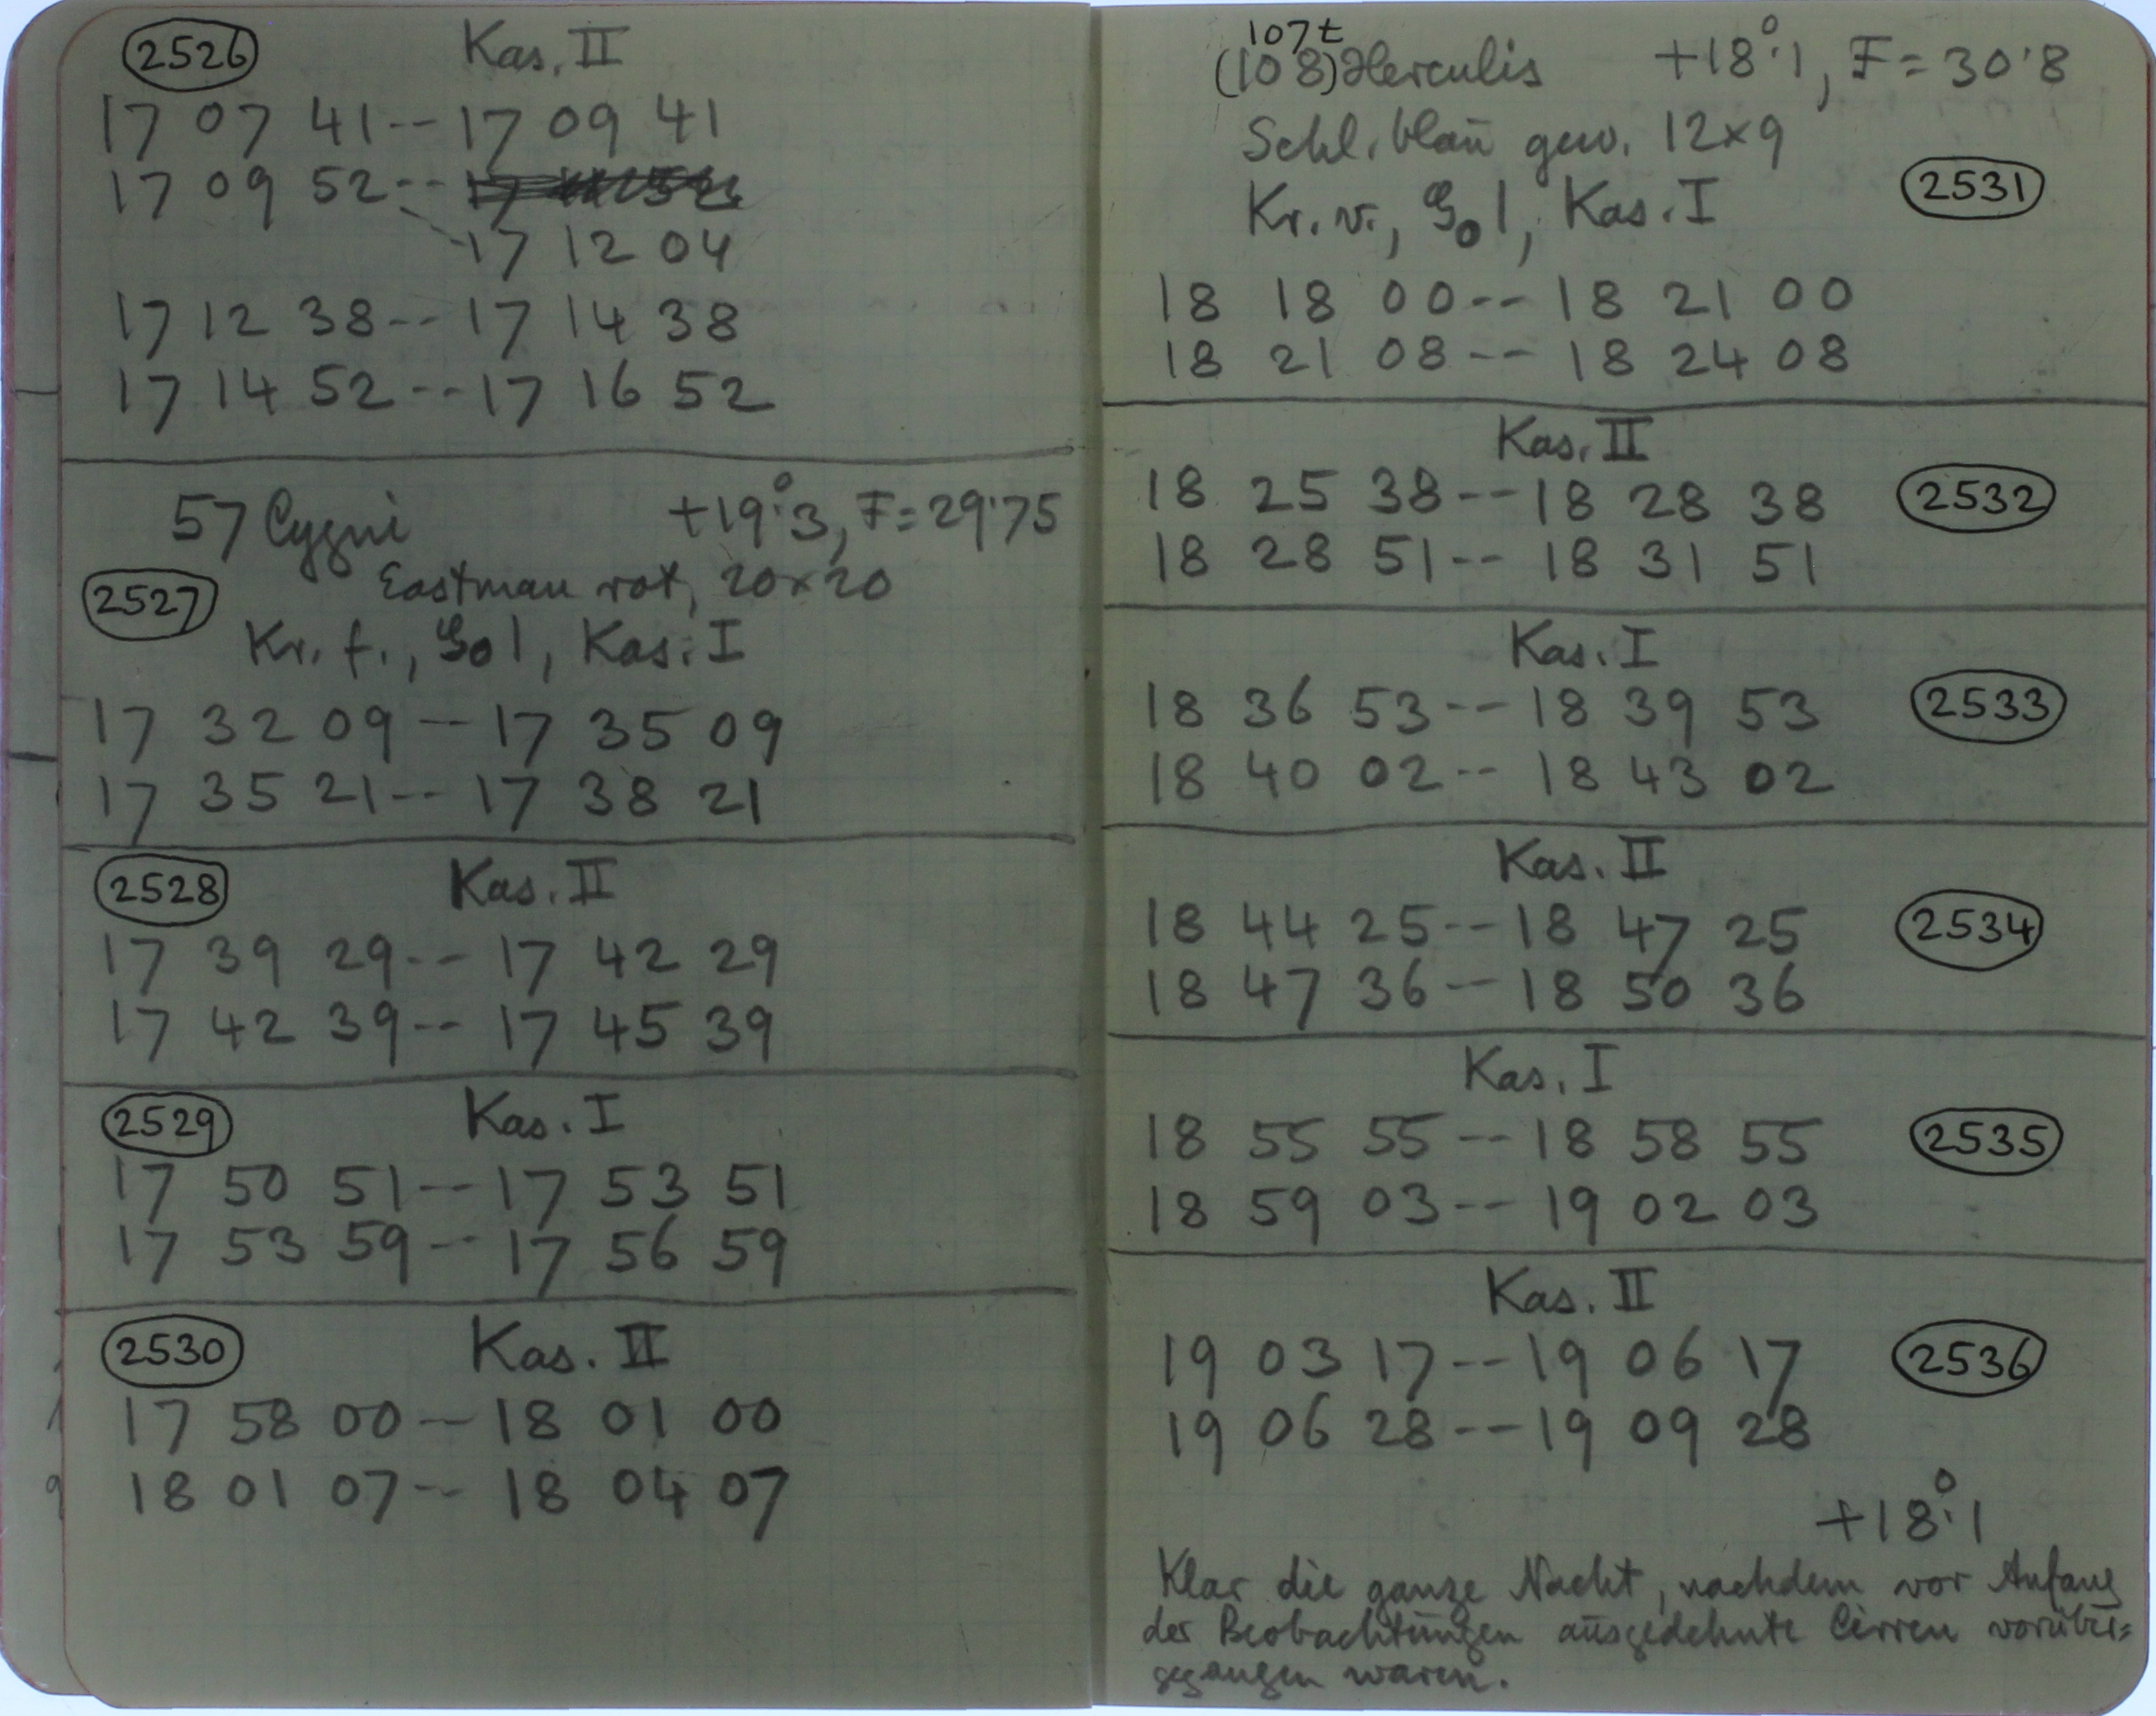 2526 Kas. II
17 07 41 -- 17 09 41
17 09 52 --
17 12 04
17 12 38 -- 17 14 38
17 14 52 -- 17 16 52
57 Cygni +19°.3, F = 29.75
2527 Eastman rot, 20×20
Kr. f., 1, Kas. I
17 32 09 -- 17 35 09
17 35 21 -- 17 38 21
2528 Kas. II
17 39 29 -- 17 42 29
17 42 39 -- 17 45 39
2529 Kas. I
17 50 51 -- 17 53 51
17 53 59 -- 17 56 59
2530 Kas. II
17 58 00 -- 18 01 00
18 01 07 -- 18 04 07
107 t
(108) Herculis +18°.1, F = 30.8
Schl. blau gew. 12×9
Kr. v., 1, Kas. I 2531
18 18 00 -- 18 21 00
18 21 08 -- 18 24 08
Kas. II
18 25 38 -- 18 28 38 2532
18 28 51 -- 18 31 51
Kas. I
18 36 53 -- 18 39 53 2533
18 40 02 -- 18 43 02
Kas. II
18 44 25 -- 18 47 25 2534
18 47 36 -- 18 50 36
Kas. I
18 55 55 -- 18 58 55 2535
18 59 03 -- 19 02 03
Kas. II
19 03 17 -- 19 06 17 2536
19 06 28 -- 19 09 28
+18°.1
Klar die ganze Nacht, nachdem vor Anfang
der Beobachtungen ausgedehnte Cirren vorüber=
gegangen waren.